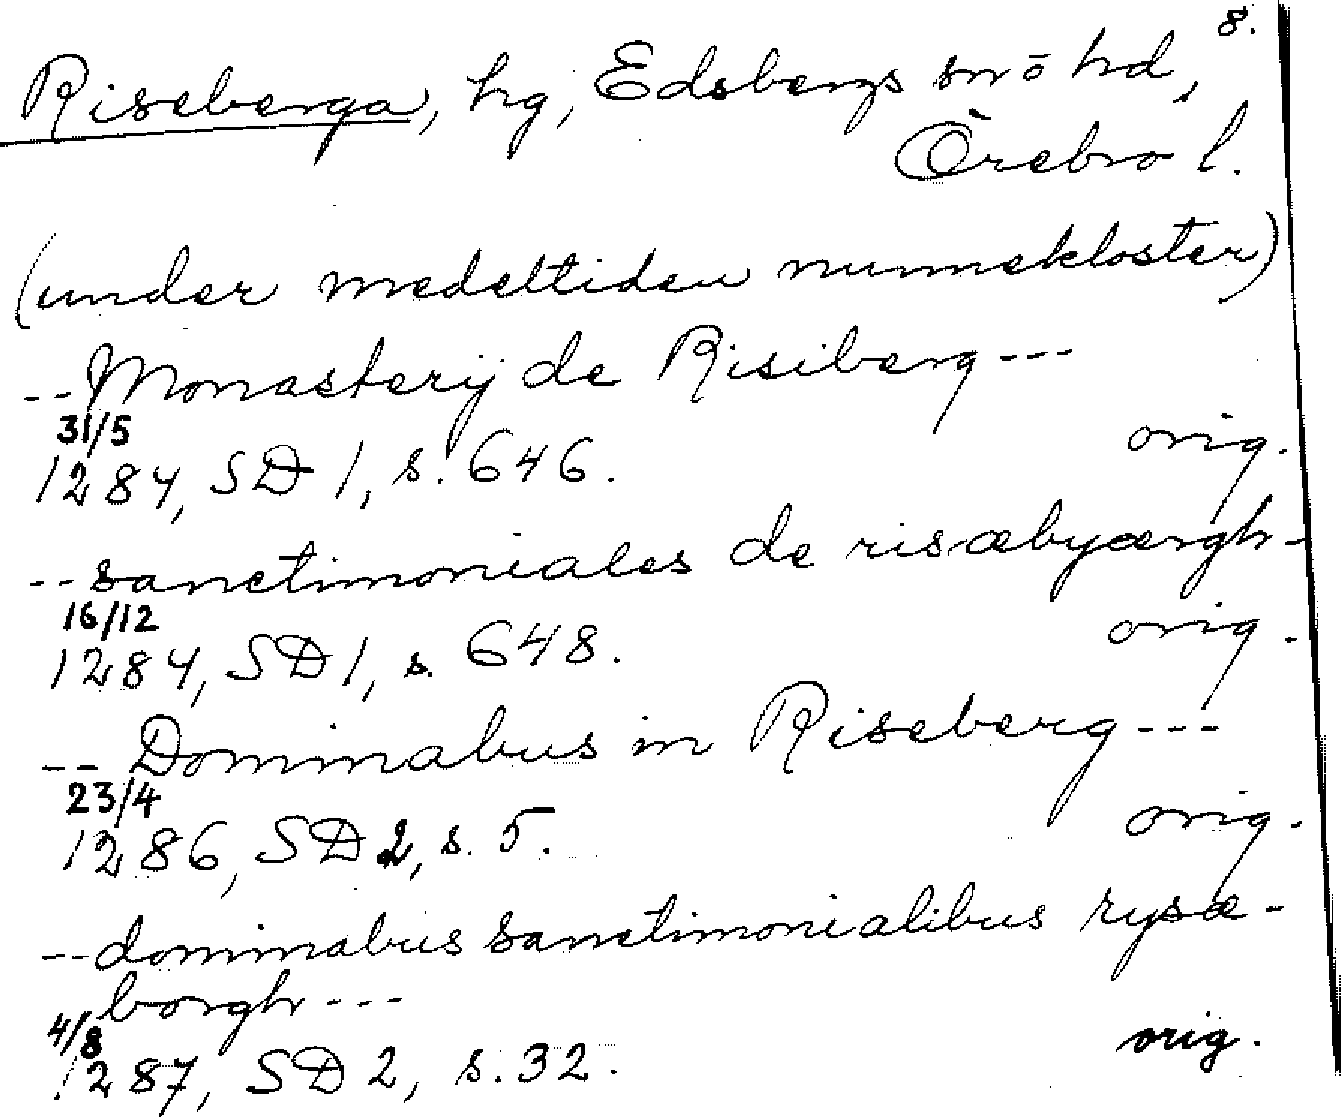 8.
Riseberga, hg, Edsbergs sn o hd,
Örebro l.
(under medeltiden nunnekloster)
--Monasterij de Risiberg---
31/5
1284, SD 1, s. 646. orig.
--sanctimoniales de risæbyærgh-
16/12
1284, SD 1, s. 648. orig.
-- Dominabus in Riseberg---
23/4
1286, SD 2, s. 5. orig.
--dominabus sanctimonialibus rysæ-
borgh---
4/8
1287, SD 2, s. 32. orig.